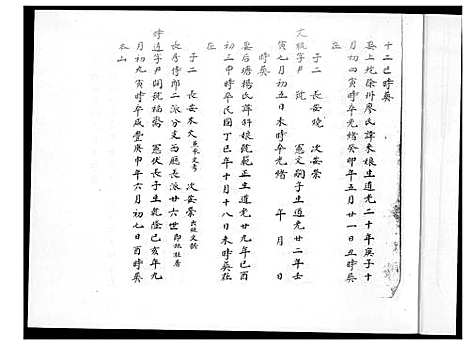 十二巳時葬
娶上坑徐州廖氏諱束娘生道光二十年庚子十
月初四寅時卒光緒癸卯年五月廿一日丑時葬
在
子二 長安燒 次安榮
文級字尹 號 憲文嗣子生道光廿二年壬
寅七月初五日未時卒光緒 年 月 日
時葬
娶后塘楊氏諱斜娘號範正生道光廿九年己酉
初三申時卒民國丁巳年十月十八日未時葬在
在
子二 長安木 次安榮
長房傳郎二派分支西廳長派廿六世
時逍字尹閣號福齋 憲伏長子生乾隆己亥年九
月初九寅時卒咸豐庚申年六月初七日酉時葬
本山